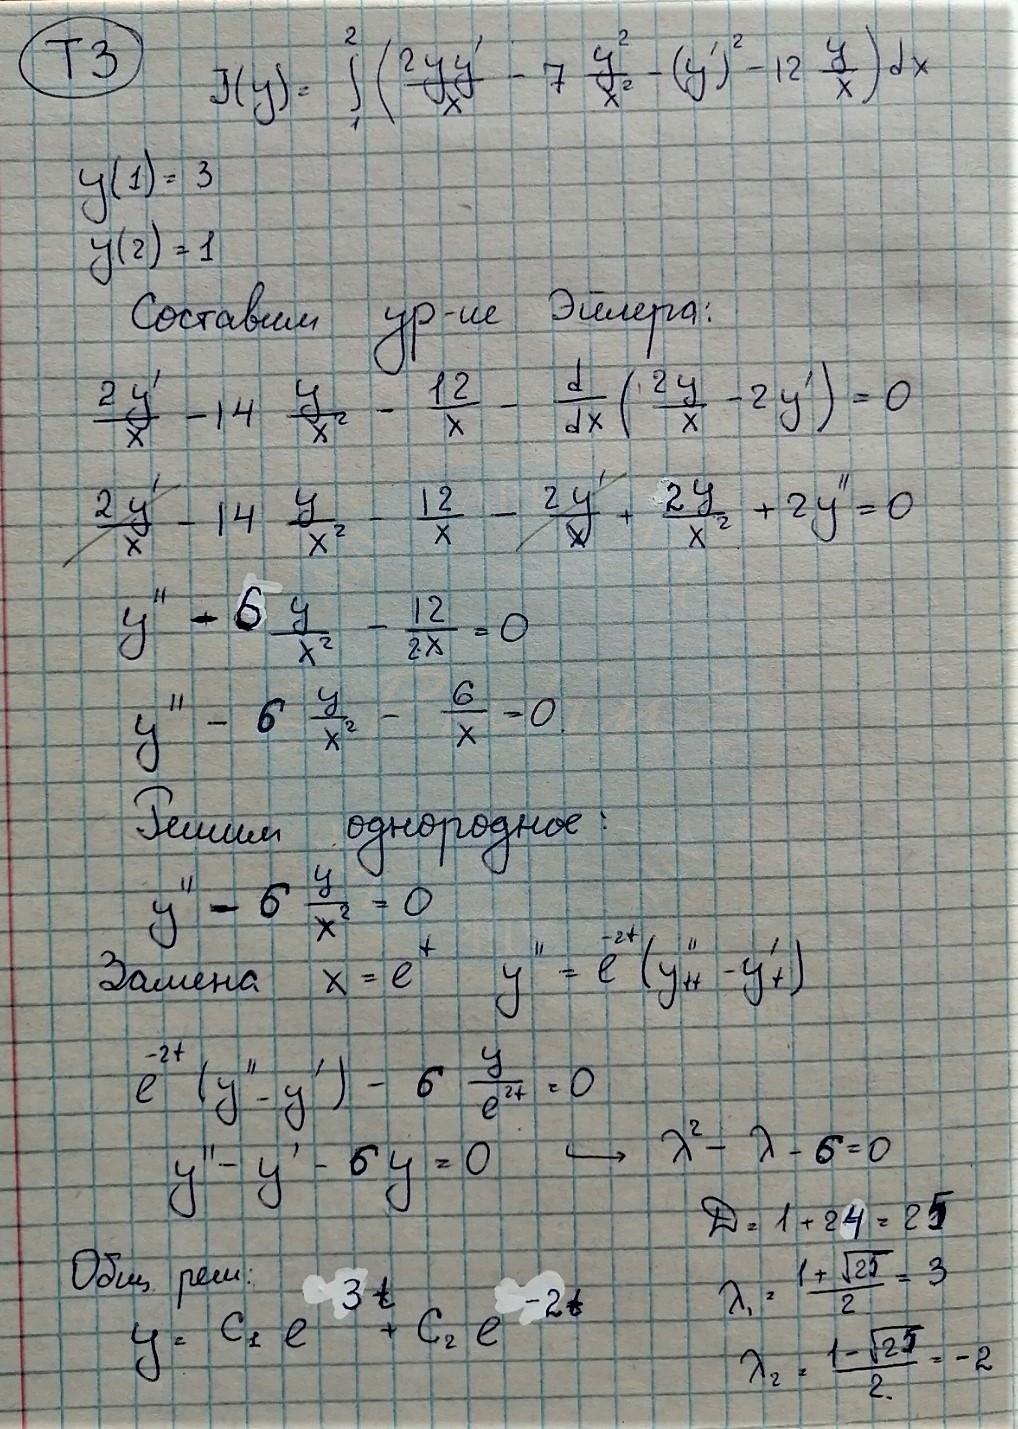 Т3
J(y) = ∫₁² (2yy'/x - 7 y²/x² - (y')² - 12 y/x) dx
y(1) = 3
y(2) = 1
Составим ур-ие Эйлера:
2y'/x - 14 y/x² - 12/x - d/dx (2y/x - 2y') = 0
2y'/x - 14 y/x² - 12/x - 2y'/x + 2y/x² + 2y'' = 0
y'' - 6 y/x² - 12/2x = 0
y'' - 6 y/x² - 6/x = 0
Решим однородное:
y'' - 6 y/x² = 0
Замена x = e^t y'' = e^(-2t) (y''_tt - y'_t)
e^(-2t) (y'' - y') - 6 y/e^(2t) = 0
y'' - y' - 6y = 0 → λ² - λ - 6 = 0
D = 1 + 24 = 25
Общ. реш:
λ₁ = (1 + √25)/2 = 3
y = C₁ e^(3t) + C₂ e^(-2t)
λ₂ = (1 - √25)/2 = -2